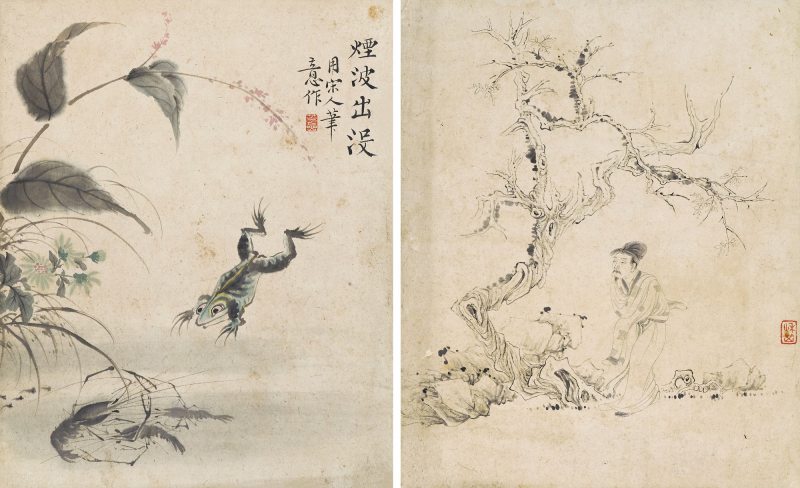 煙波出没
用宋人筆
立意作